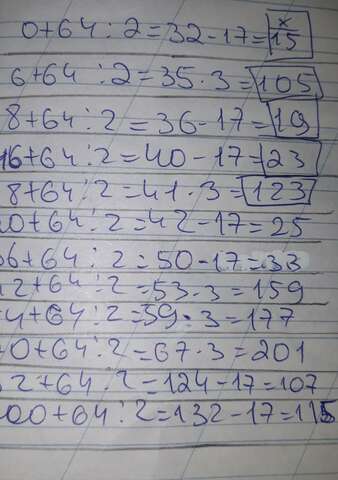 0+64:2=32-17=15 x
6+64:2=35·3=105
8+64:2=36-17=19
16+64:2=40-17=23
8+64:2=41·3=123
20+64:2=42-17=25
36+64:2=50-17=33
42+64:2=53·3=159
54+64:2=59·3=177
70+64:2=67·3=201
82+64:2=124-17=107
200+64:2=132-17=115